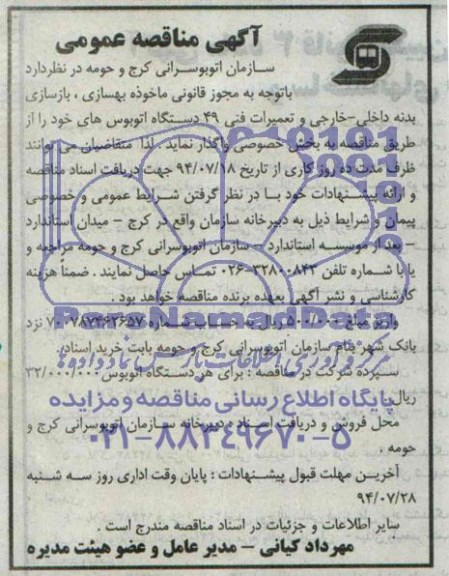 آگهی مناقصه عمومی
سازمان اتوبوسرانی کرج و حومه در نظردارد
باتوجه به مجوز قانونی ماخوذه بهسازی ، بازسازی
بدنه داخلی-خارجی و تعمیرات فنی ۴۹ دستگاه اتوبوس های خود را از
طریق مناقصه به بخش خصوصی واگذار نماید . لذا متقاضیان می توانند
ظرف مدت ده روز کاری از تاریخ ۹۴/۰۷/۱۸ جهت دریافت اسناد مناقصه
و ارائه پیشنهادات خود با در نظر گرفتن شرایط عمومی و خصوصی
پیمان و شرایط ذیل به دبیرخانه سازمان واقع در کرج – میدان استاندارد
– بعد از موسسه استاندارد – سازمان اتوبوسرانی کرج و حومه مراجعه و
یا با شماره تلفن ۳۲۸۰۰۸۴۲-۰۲۶ تماس حاصل نمایند . ضمناً هزینه
کارشناسی و نشر آگهی بعهده برنده مناقصه خواهد بود .
ParsNamadData
واریز مبلغ ۵۰۰/۰۰۰ ریال به حساب شماره ۷۰۰۷۸۷۴۶۳۶۵۷ نزد
بانک شهر بنام سازمان اتوبوسرانی کرج و حومه بابت خرید اسناد.
سپرده شرکت در مناقصه : برای هر دستگاه اتوبوس ۳۲/۰۰۰/۰۰۰
ریال
پایگاه اطلاع رسانی مناقصه و مزایده
محل فروش و دریافت اسناد : دبیرخانه سازمان اتوبوسرانی کرج و
۰۲۱-۸۸۳۴۹۶۷۰-۵
حومه .
آخرین مهلت قبول پیشنهادات : پایان وقت اداری روز سه شنبه
۹۴/۰۷/۲۸
سایر اطلاعات و جزئیات در اسناد مناقصه مندرج است .
مهرداد کیانی – مدیر عامل و عضو هیئت مدیره